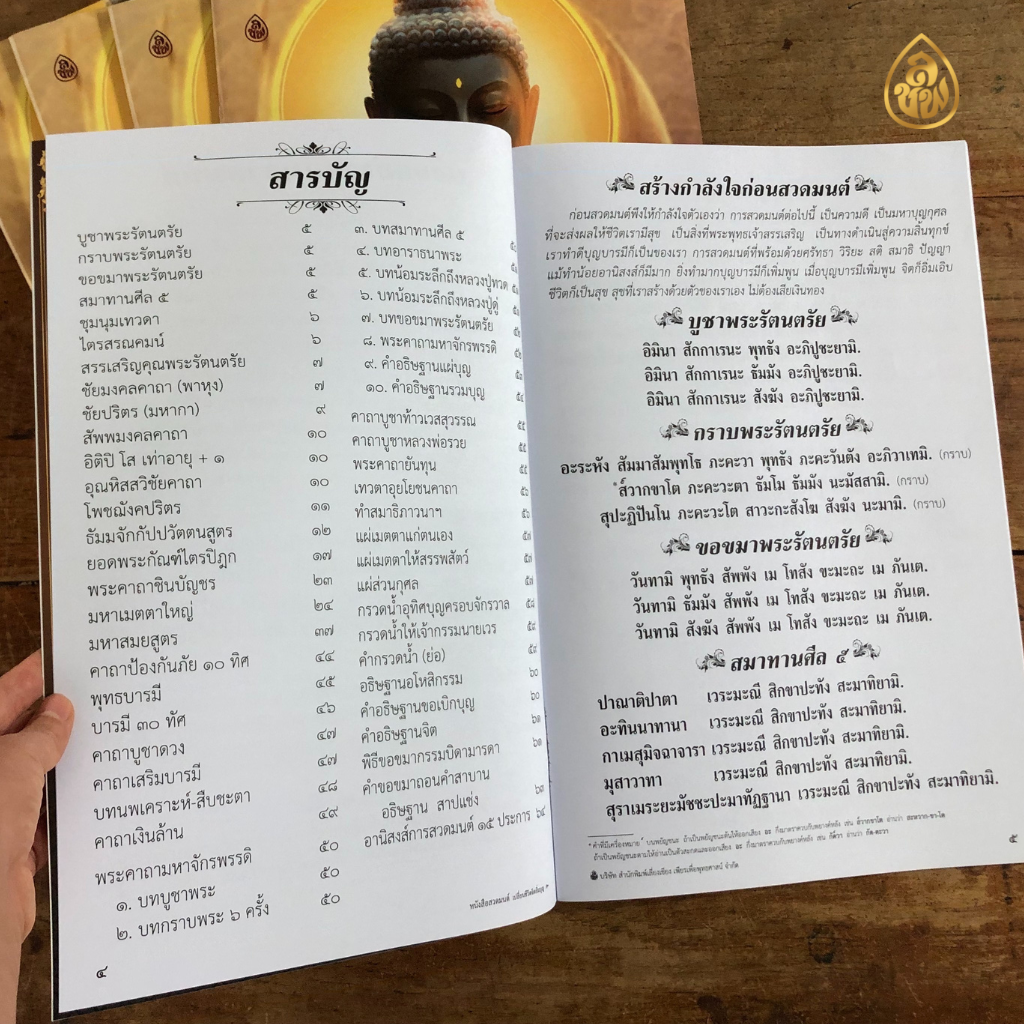 สารบัญ
บูชาพระรัตนตรัย ๕
กราบพระรัตนตรัย ๕
ขอขมาพระรัตนตรัย ๕
สมาทานศีล ๕ ๕
ชุมนุมเทวดา ๖
ไตรสรณคมน์ ๖
สรรเสริญคุณพระรัตนตรัย ๗
ชัยมงคลคาถา (พาหุง) ๗
ชัยปริตร (มหากา) ๙
สัพพมงคลคาถา ๑๐
อิติปิ โส เท่าอายุ + ๑ ๑๐
อุณหิสสวิชัยคาถา ๑๐
โพชฌังคปริตร ๑๑
ธัมมจักกัปปวัตตนสูตร ๑๒
ยอดพระกัณฑ์ไตรปิฎก ๑๗
พระคาถาชินบัญชร ๒๓
มหาเมตตาใหญ่ ๒๔
มหาสมยสูตร ๓๗
คาถาป้องกันภัย ๑๐ ทิศ ๔๔
พุทธบารมี ๔๕
บารมี ๓๐ ทัศ ๔๖
คาถาบูชาดวง ๔๗
คาถาเสริมบารมี ๔๗
บทนพเคราะห์-สืบชะตา ๔๘
คาถาเงินล้าน ๔๙
พระคาถามหาจักรพรรดิ ๕๐
๑. บทบูชาพระ ๕๐
๒. บทกราบพระ ๖ ครั้ง ๕๐
๓. บทสมาทานศีล ๕
๔. บทอาราธนาพระ
๕. บทน้อมระลึกถึงหลวงปู่ทวด
๖. บทน้อมระลึกถึงหลวงปู่ดู่
๗. บทขอขมาพระรัตนตรัย
๘. พระคาถามหาจักรพรรดิ
๙. คำอธิษฐานแผ่บุญ
๑๐. คำอธิษฐานรวมบุญ
คาถาบูชาท้าวเวสสุวรรณ ๕๕
คาถาบูชาหลวงพ่อรวย ๕๕
พระคาถายันทุน ๕๕
เทวตาอุยโยชนคาถา ๕๖
ทำสมาธิภาวนาฯ ๕๖
แผ่เมตตาแก่ตนเอง ๕๗
แผ่เมตตาให้สรรพสัตว์ ๕๗
แผ่ส่วนกุศล ๕๗
กรวดน้ำอุทิศบุญครอบจักรวาล ๕๘
กรวดน้ำให้เจ้ากรรมนายเวร ๕๙
คำกรวดน้ำ (ย่อ) ๕๙
อธิษฐานอโหสิกรรม ๖๐
คำอธิษฐานขอเบิกบุญ ๖๐
คำอธิษฐานจิต ๖๑
พิธีขอขมากรรมบิดามารดา ๖๑
คำขอขมาถอนคำสาบาน
อธิษฐาน สาปแช่ง ๖๓
อานิสงส์การสวดมนต์ ๑๕ ประการ ๖๔
๔
สร้างกำลังใจก่อนสวดมนต์
ก่อนสวดมนต์พึงให้กำลังใจตัวเองว่า การสวดมนต์ต่อไปนี้ เป็นความดี เป็นมหาบุญกุศล
ที่จะส่งผลให้ชีวิตเรามีสุข เป็นสิ่งที่พระพุทธเจ้าสรรเสริญ เป็นทางดำเนินสู่ความสิ้นทุกข์
เราทำดีบุญบารมีก็เป็นของเรา การสวดมนต์ที่พร้อมด้วยศรัทธา วิริยะ สติ สมาธิ ปัญญา
แม้ทำน้อยอานิสงส์ก็มีมาก ยิ่งทำมากบุญบารมีก็เพิ่มพูน เมื่อบุญบารมีเพิ่มพูน จิตก็อิ่มเอิบ
ชีวิตก็เป็นสุข สุขที่เราสร้างด้วยตัวของเราเอง ไม่ต้องเสียเงินทอง
บูชาพระรัตนตรัย
อิมินา สักกาเรนะ พุทธัง อะภิปูชะยามิ.
อิมินา สักกาเรนะ ธัมมัง อะภิปูชะยามิ.
อิมินา สักกาเรนะ สังฆัง อะภิปูชะยามิ.
กราบพระรัตนตรัย
อะระหัง สัมมาสัมพุทโธ ภะคะวา พุทธัง ภะคะวันตัง อะภิวาเทมิ. (กราบ)
*ส๎วากขาโต ภะคะวะตา ธัมโม ธัมมัง นะมัสสามิ. (กราบ)
สุปะฏิปันโน ภะคะวะโต สาวะกะสังโฆ สังฆัง นะมามิ. (กราบ)
ขอขมาพระรัตนตรัย
วันทามิ พุทธัง สัพพัง เม โทสัง ขะมะถะ เม ภันเต.
วันทามิ ธัมมัง สัพพัง เม โทสัง ขะมะถะ เม ภันเต.
วันทามิ สังฆัง สัพพัง เม โทสัง ขะมะถะ เม ภันเต.
สมาทานศีล ๕
ปาณาติปาตา เวระมะณี สิกขาปะทัง สะมาทิยามิ.
อะทินนาทานา เวระมะณี สิกขาปะทัง สะมาทิยามิ.
กาเมสุมิจฉาจารา เวระมะณี สิกขาปะทัง สะมาทิยามิ.
มุสาวาทา เวระมะณี สิกขาปะทัง สะมาทิยามิ.
สุราเมระยะมัชชะปะมาทัฏฐานา เวระมะณี สิกขาปะทัง สะมาทิยามิ.
บริษัท สำนักพิมพ์เลี่ยงเชียง เพียรเพื่อพุทธศาสน์ จำกัด
๕